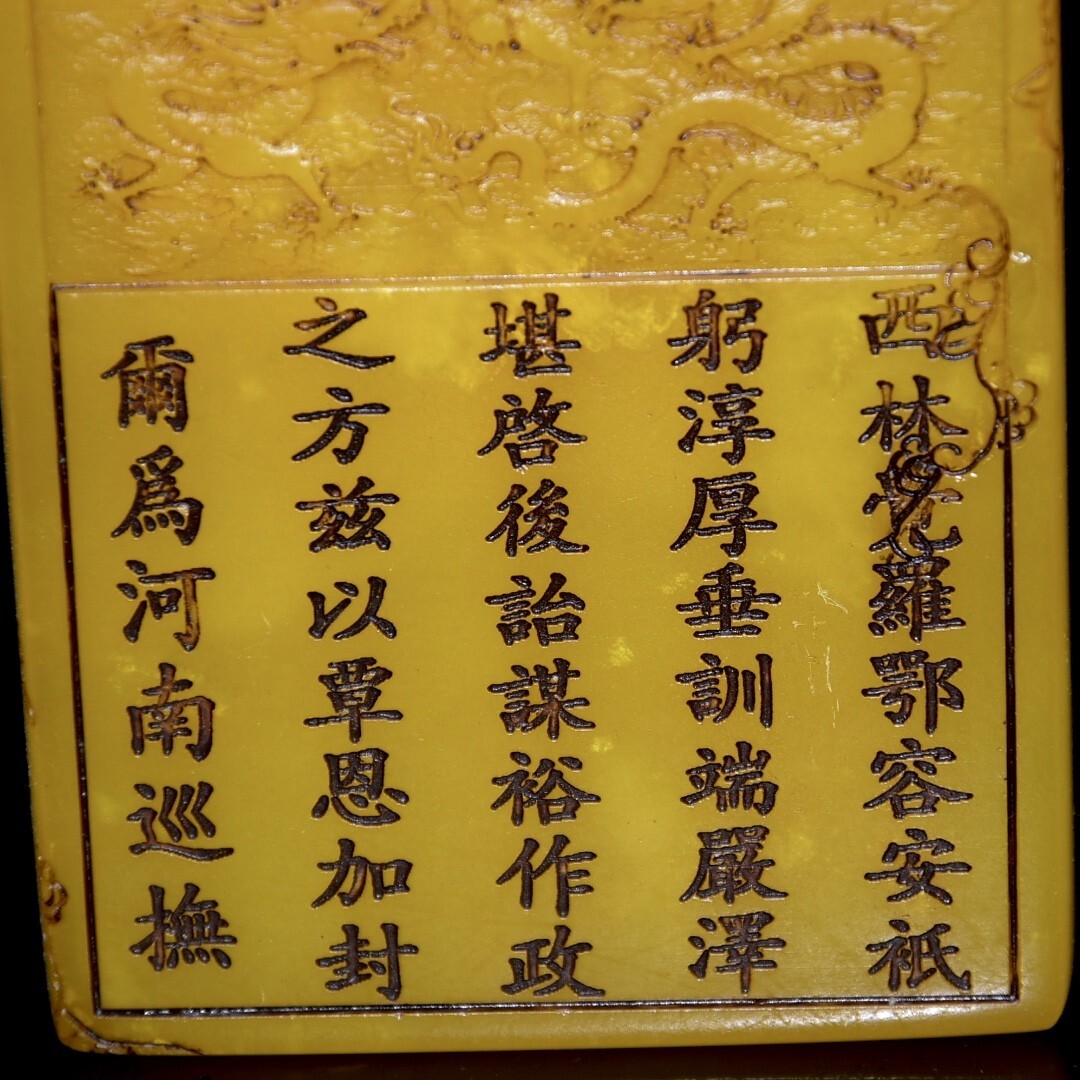 西林觉羅鄂容安祗
躬淳厚垂訓端嚴澤
堪啓後詒謀裕作政
之方兹以覃恩加封
爾爲河南巡撫